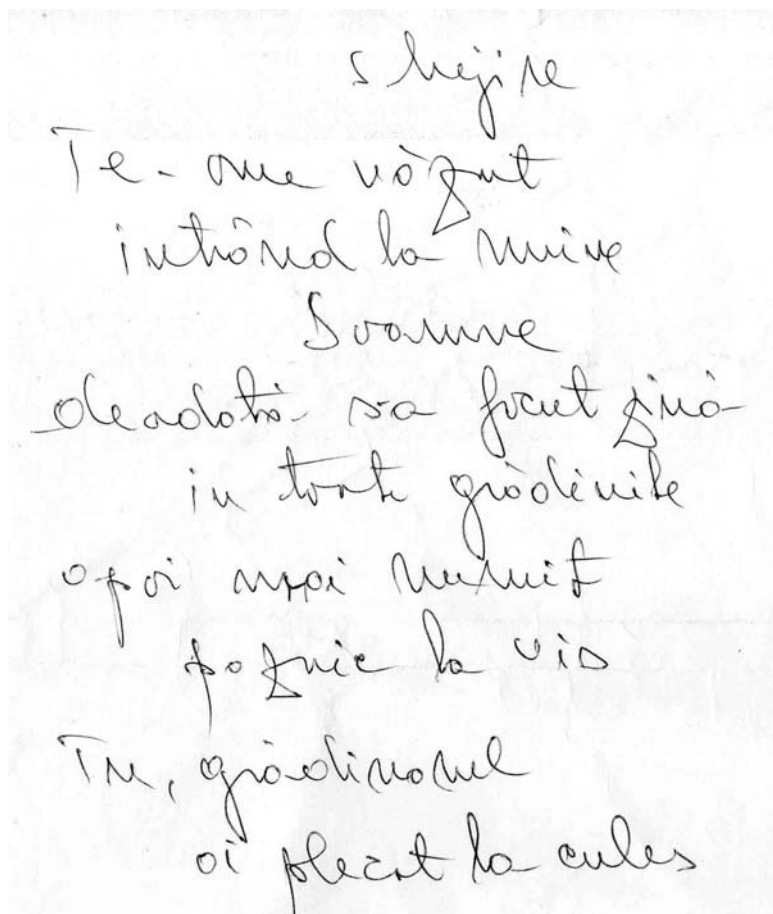 slujire
Te-am văzut
intrând la mine
Doamne
deodată sa facut ziuă
in toate grădinile
apoi mai numit
paznic la vis
Tu, grădinarul
ai plecat la cules